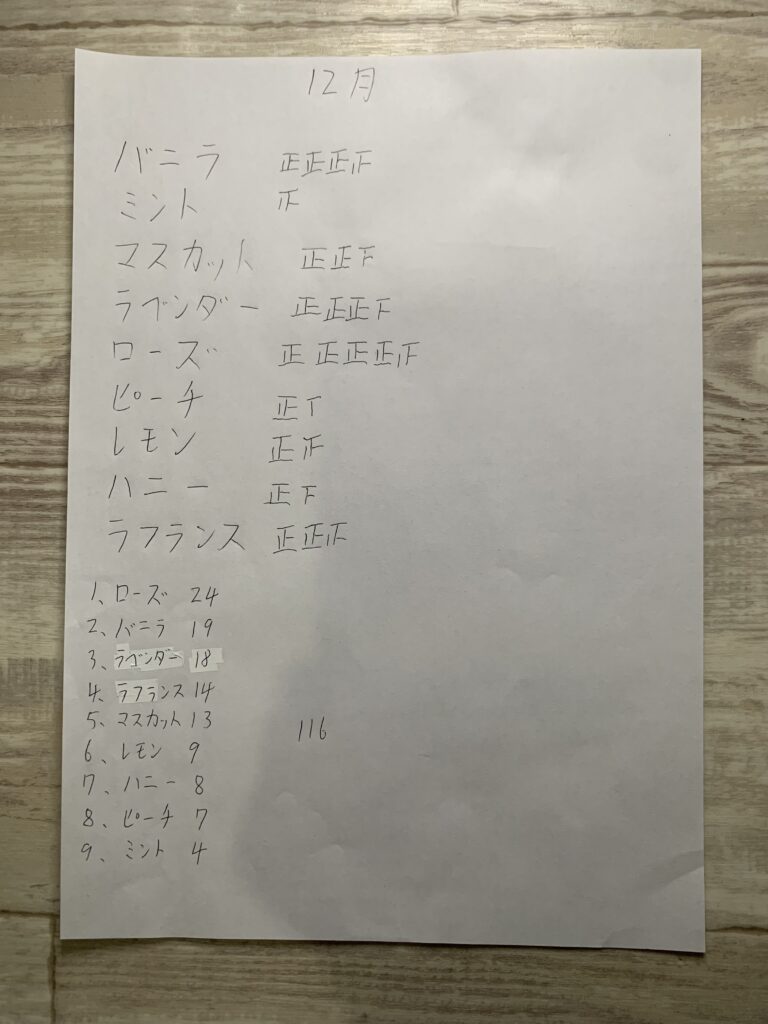 12月
バニラ 正正正正
ミント 正
マスカット 正正下
ラベンダー 正正正下
ローズ 正正正正正
ピーチ 正丅
レモン 正正
ハニー 正下
ラフランス 正正正
1、ローズ 24
2、バニラ 19
3、ラベンダー 18
4、ラフランス 14
5、マスカット 13
116
6、レモン 9
7、ハニー 8
8、ピーチ 7
9、ミント 4